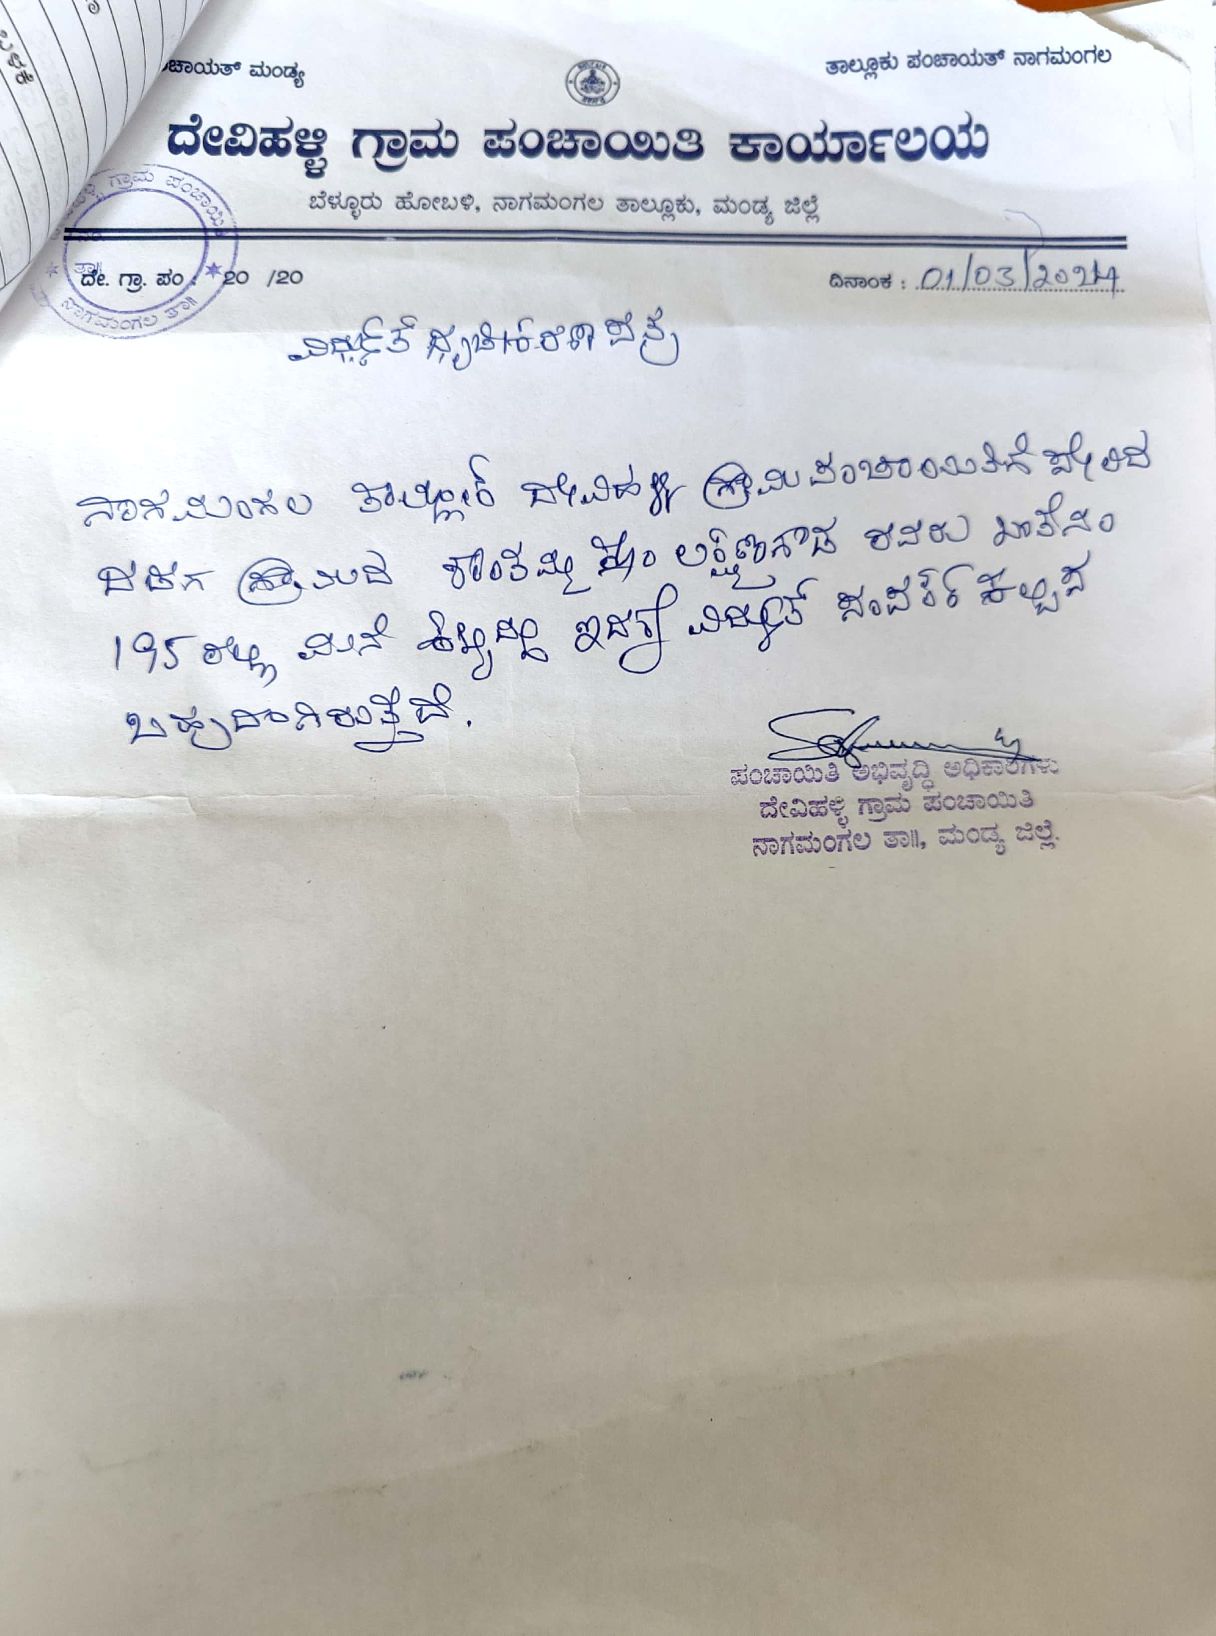 ಪಂಚಾಯತ್ ಮಂಡ್ಯ
ತಾಲ್ಲೂಕು ಪಂಚಾಯತ್ ನಾಗಮಂಗಲ
ದೇವಿಹಳ್ಳಿ ಗ್ರಾಮ ಪಂಚಾಯಿತಿ ಕಾರ್ಯಾಲಯ
ಬೆಳ್ಳೂರು ಹೋಬಳಿ, ನಾಗಮಂಗಲ ತಾಲ್ಲೂಕು, ಮಂಡ್ಯ ಜಿಲ್ಲೆ
ಗ್ರಾಮ ಪಂಚಾಯಿತಿ
ನಾಗಮಂಗಲ ತಾ||
ದೇ. ಗ್ರಾ. ಪಂ : 20 /20
ದಿನಾಂಕ : 01/03/2024
ವಿದ್ಯುತ್ ಧೃಢೀಕರಣ ಪತ್ರ
ನಾಗಮಂಗಲ ತಾಲ್ಲೂಕ್ ದೇವಿಹಳ್ಳಿ ಗ್ರಾಮ ಪಂಚಾಯಿತಿಗೆ ಸೇರಿದ
ದಡಗ ಗ್ರಾಮದ ಶಾಂತಮ್ಮ ಕೋಂ ಲಕ್ಷ್ಮಣಗೌಡ ರವರು ಖಾತೆ ನಂ
195 ರಲ್ಲಿ ಮನೆ ಇದಕ್ಕೆ ವಿದ್ಯುತ್ ಸಂಪರ್ಕ
ಬಹುದಾಗಿರುತ್ತದೆ.
ಪಂಚಾಯಿತಿ ಅಭಿವೃದ್ಧಿ ಅಧಿಕಾರಿಗಳು
ದೇವಿಹಳ್ಳಿ ಗ್ರಾಮ ಪಂಚಾಯಿತಿ
ನಾಗಮಂಗಲ ತಾ||, ಮಂಡ್ಯ ಜಿಲ್ಲೆ.